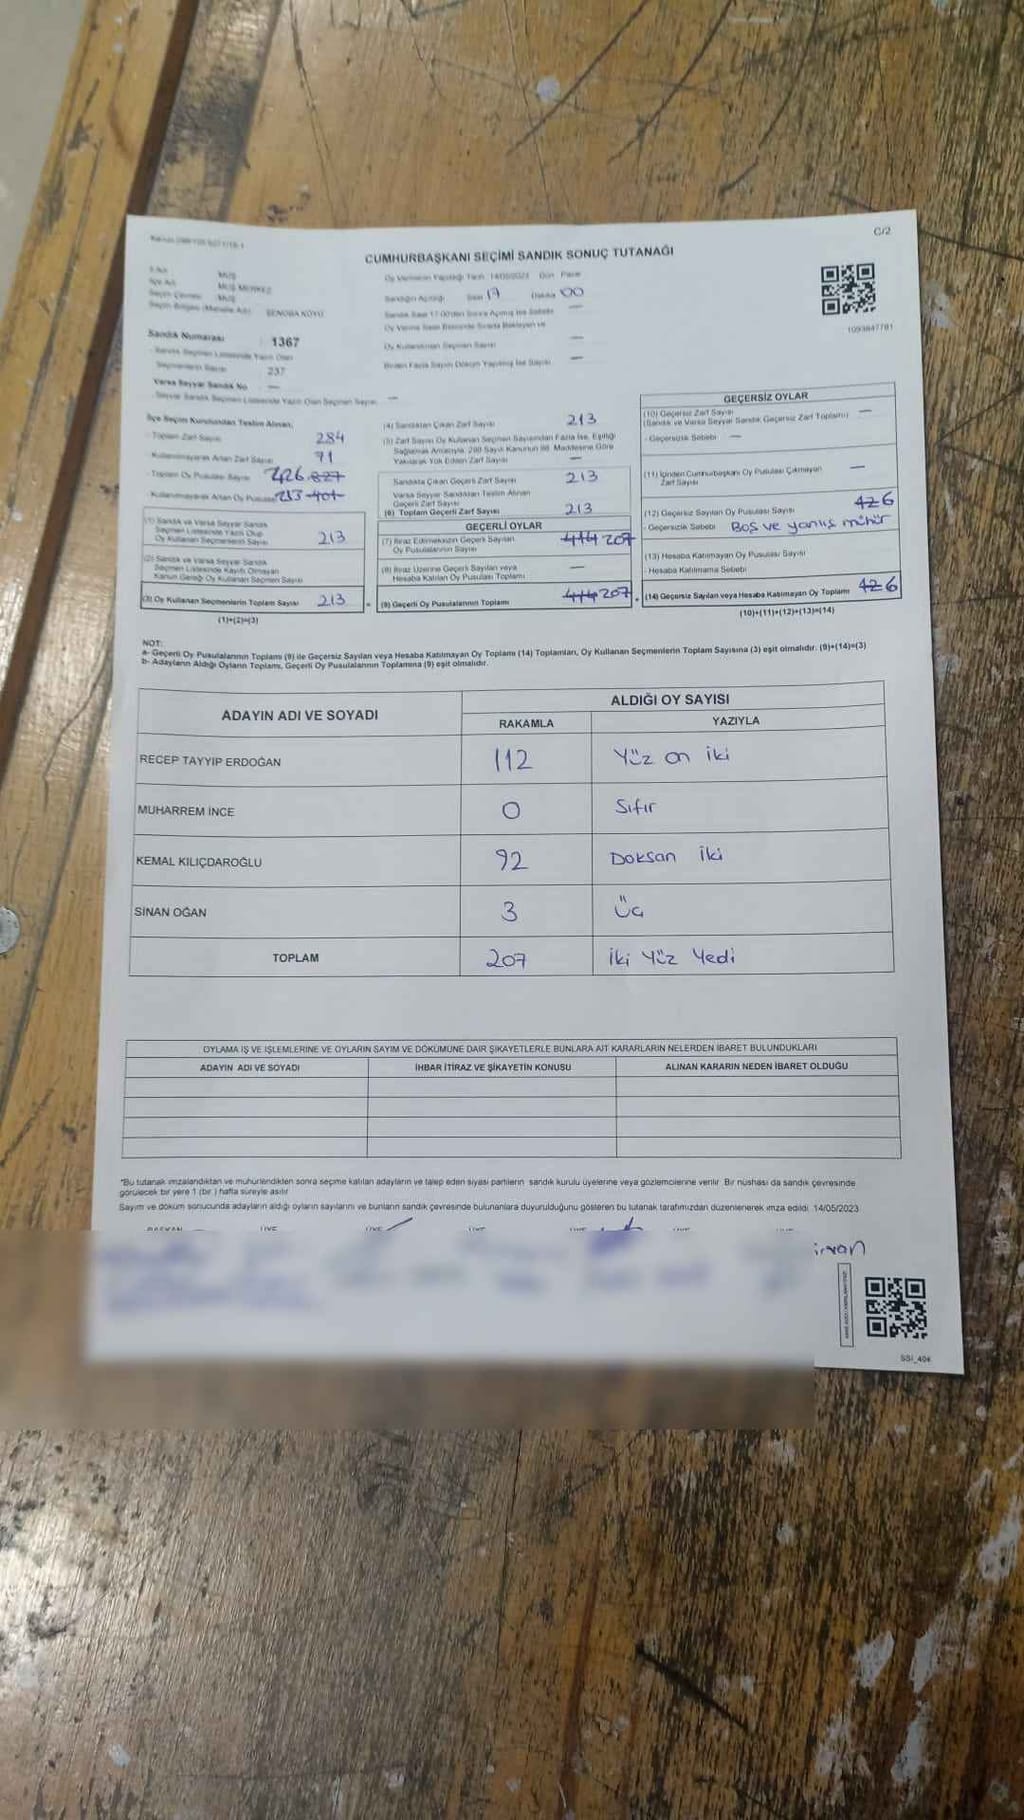 C/2
CUMHURBAŞKANI SEÇİMİ SANDIK SONUÇ TUTANAĞI
İlçe Adı MUŞ MERKEZ
Seçim Çevresi MUŞ
Seçim Bölgesi (Mahalle Adı) ŞENOBA KÖYÜ
Oy Vermenin Yapıldığı Tarih 14/05/2023 Gün Pazar
Sandığın Açıldığı Saat 17 Dakika 00
1093847781
Sandık Numarası 1367
Sandık Seçmen Listesinde Yazılı Olan
Seçmenlerin Sayısı 237
Varsa Seyyar Sandık No —
Seyyar Sandık Seçmen Listesinde Yazılı Olan Seçmen Sayısı —
Oy Kullanılan Seçmen Sayısı —
Birden Fazla Sayım Döküm Yapılmış İse Sayısı —
İlçe Seçim Kurulundan Teslim Alınan;
Toplam Zarf Sayısı 284
Kullanılmayarak Artan Zarf Sayısı 71
Toplam Oy Pusulası Sayısı 426 827
Kullanılmayarak Artan Oy Pusulası 213 401
(1) Sandık ve Varsa Seyyar Sandık
Seçmen Listesinde Yazılı Olup
Oy Kullanan Seçmenlerin Sayısı 213
(2) Sandık ve Varsa Seyyar Sandık
Seçmen Listesinde Kayıtlı Olmayan
Kanun Gereği Oy Kullanan Seçmen Sayısı
(3) Oy Kullanan Seçmenlerin Toplam Sayısı 213
(1)+(2)=(3)
(4) Sandıktan Çıkan Zarf Sayısı 213
(5) Zarf Sayısı Oy Kullanan Seçmen Sayısından Fazla İse, Eşitliği
Sağlamak Amacıyla, 298 Sayılı Kanunun 98. Maddesine Göre
Yakılarak Yok Edilen Zarf Sayısı —
Sandıkta Çıkan Geçerli Zarf Sayısı 213
Varsa Seyyar Sandıktan Teslim Alınan
Geçerli Zarf Sayısı
(6) Toplam Geçerli Zarf Sayısı 213
GEÇERLİ OYLAR
(7) İtiraz Edilmeksizin Geçerli Sayılan
Oy Pusulalarının Sayısı 414 207
(8) İtiraz Üzerine Geçerli Sayılan veya
Hesaba Katılan Oy Pusulası Toplamı —
(9) Geçerli Oy Pusulalarının Toplamı 414 207
GEÇERSİZ OYLAR
(10) Geçersiz Zarf Sayısı
(Sandık ve Varsa Seyyar Sandık Geçersiz Zarf Toplamı) —
Geçersizlik Sebebi —
(11) İçinden Cumhurbaşkanı Oy Pusulası Çıkmayan
Zarf Sayısı —
(12) Geçersiz Sayılan Oy Pusulası Sayısı 12 6
Geçersizlik Sebebi Boş ve yanlış mühür
(13) Hesaba Katılmayan Oy Pusulası Sayısı
Hesaba Katılmama Sebebi
(14) Geçersiz Sayılan veya Hesaba Katılmayan Oy Toplamı 12 6
(10)+(11)+(12)+(13)=(14)
NOT:
a- Geçerli Oy Pusulalarının Toplamı (9) ile Geçersiz Sayılan veya Hesaba Katılmayan Oy Toplamı (14) Toplamları, Oy Kullanan Seçmenlerin Toplam Sayısına (3) eşit olmalıdır. (9)+(14)=(3)
b- Adayların Aldığı Oyların Toplamı, Geçerli Oy Pusulalarının Toplamına (9) eşit olmalıdır.
ADAYIN ADI VE SOYADI ALDIĞI OY SAYISI
RAKAMLA YAZIYLA
RECEP TAYYIP ERDOĞAN 112 Yüz on iki
MUHARREM İNCE 0 Sıfır
KEMAL KILIÇDAROĞLU 92 Doksan iki
SİNAN OĞAN 3 Üç
TOPLAM 207 İki Yüz Yedi
OYLAMA İŞ VE İŞLEMLERİNE VE OYLARIN SAYIM VE DÖKÜMÜNE DAİR ŞİKAYETLERLE BUNLARA AİT KARARLARIN NELERDEN İBARET BULUNDUKLARI
ADAYIN ADI VE SOYADI İHBAR İTİRAZ VE ŞİKAYETİN KONUSU ALINAN KARARIN NEDEN İBARET OLDUĞU
*Bu tutanak imzalandıktan ve mühürlendikten sonra seçime katılan adayların ve talep eden siyasi partilerin sandık kurulu üyelerine veya gözlemcilerine verilir. Bir nüshası da sandık çevresinde
görülecek bir yere 1 (bir ) hafta süreyle asılır
Sayım ve döküm sonucunda adayların aldığı oyların sayılarını ve bunların sandık çevresinde bulunanlara duyurulduğunu gösteren bu tutanak tarafımızdan düzenlenerek imza edildi. 14/05/2023
SSI_404